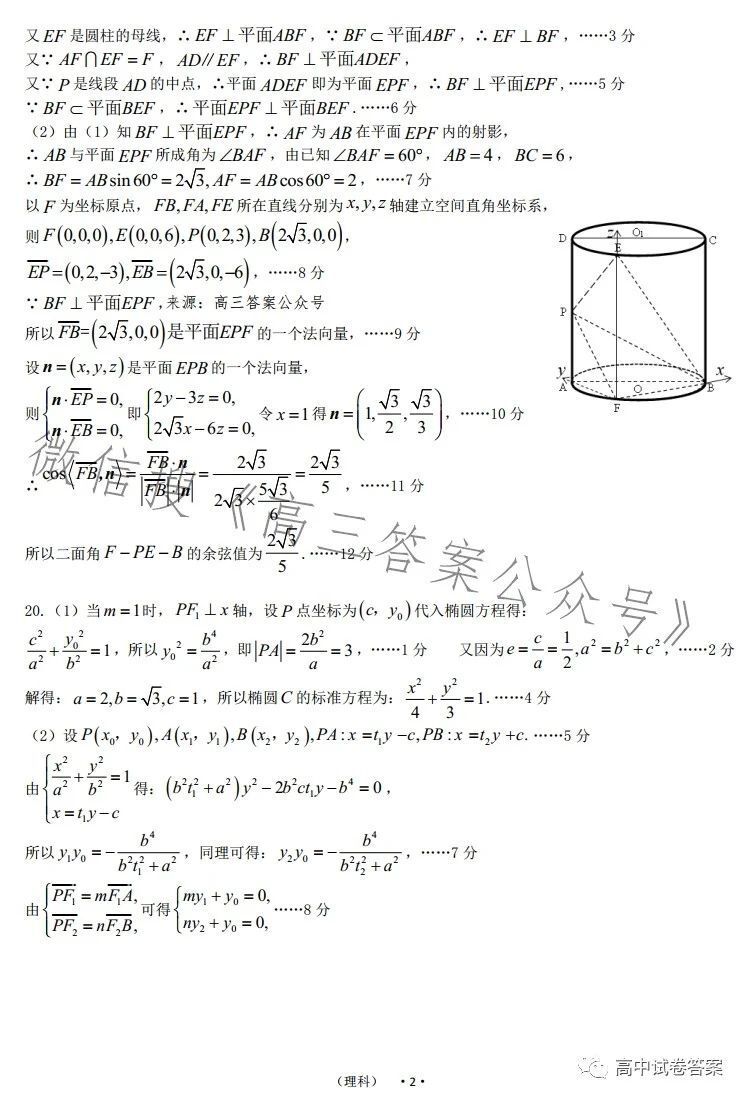 又EF是圆柱的母线，∴EF⊥平面ABF，∵BF⊂平面ABF，∴EF⊥BF，……3分
又∵AF⋂EF=F，AD∥EF，∴BF⊥平面ADEF，
又∵P是线段AD的中点，∴平面ADEF即为平面EPF，∴BF⊥平面EPF,……5分
∵BF⊂平面BEF，∴平面EPF⊥平面BEF.……6分
（2）由（1）知BF⊥平面EPF，∴AF为AB在平面EPF内的射影，
∴AB与平面EPF所成角为∠BAF，由已知∠BAF=60°，AB=4，BC=6，
∴BF=ABsin60°=2√3,AF=ABcos60°=2，……7分
以F为坐标原点，FB,FA,FE所在直线分别为x,y,z轴建立空间直角坐标系，
则F(0,0,0),E(0,0,6),P(0,2,3),B(2√3,0,0),
EP=(0,2,−3),EB=(2√3,0,−6)，……8分
∵BF⊥平面EPF,来源：高三答案公众号
所以FB=(2√3,0,0)是平面EPF的一个法向量，……9分
设n=(x,y,z)是平面EPB的一个法向量，
则{n·EP=0, n·EB=0, 即{2y−3z=0, 2√3x−6z=0, 令x=1得n=(1,√3/2,√3/3)，……10分
∴cos⟨FB,n⟩=FB·n/|FB||n|=2√3/(2√3×5√3/6)=2√3/5，……11分
所以二面角F−PE−B的余弦值为2√3/5.……12分
D O₁ C
z
E
P
y x
A O B
F
20.（1）当m=1时，PF₁⊥x轴，设P点坐标为(c，y₀)代入椭圆方程得：
c²/a²+y₀²/b²=1，所以y₀²=b⁴/a²，即|PA|=2b²/a=3，……1分 又因为e=c/a=1/2,a²=b²+c²，……2分
解得：a=2,b=√3,c=1，所以椭圆C的标准方程为：x²/4+y²/3=1.……4分
（2）设P(x₀，y₀),A(x₁，y₁),B(x₂，y₂),PA:x=t₁y−c,PB:x=t₂y+c.……5分
由{x²/a²+y²/b²=1 x=t₁y−c 得：(b²t₁²+a²)y²−2b²ct₁y−b⁴=0，
所以y₁y₀=−b⁴/(b²t₁²+a²)，同理可得：y₂y₀=−b⁴/(b²t₂²+a²)，……7分
由{PF₁=mF₁A, PF₂=nF₂B, 可得{my₁+y₀=0, ny₂+y₀=0,……8分
微信搜《高三答案公众号》
高中试卷答案
（理科） ·2·